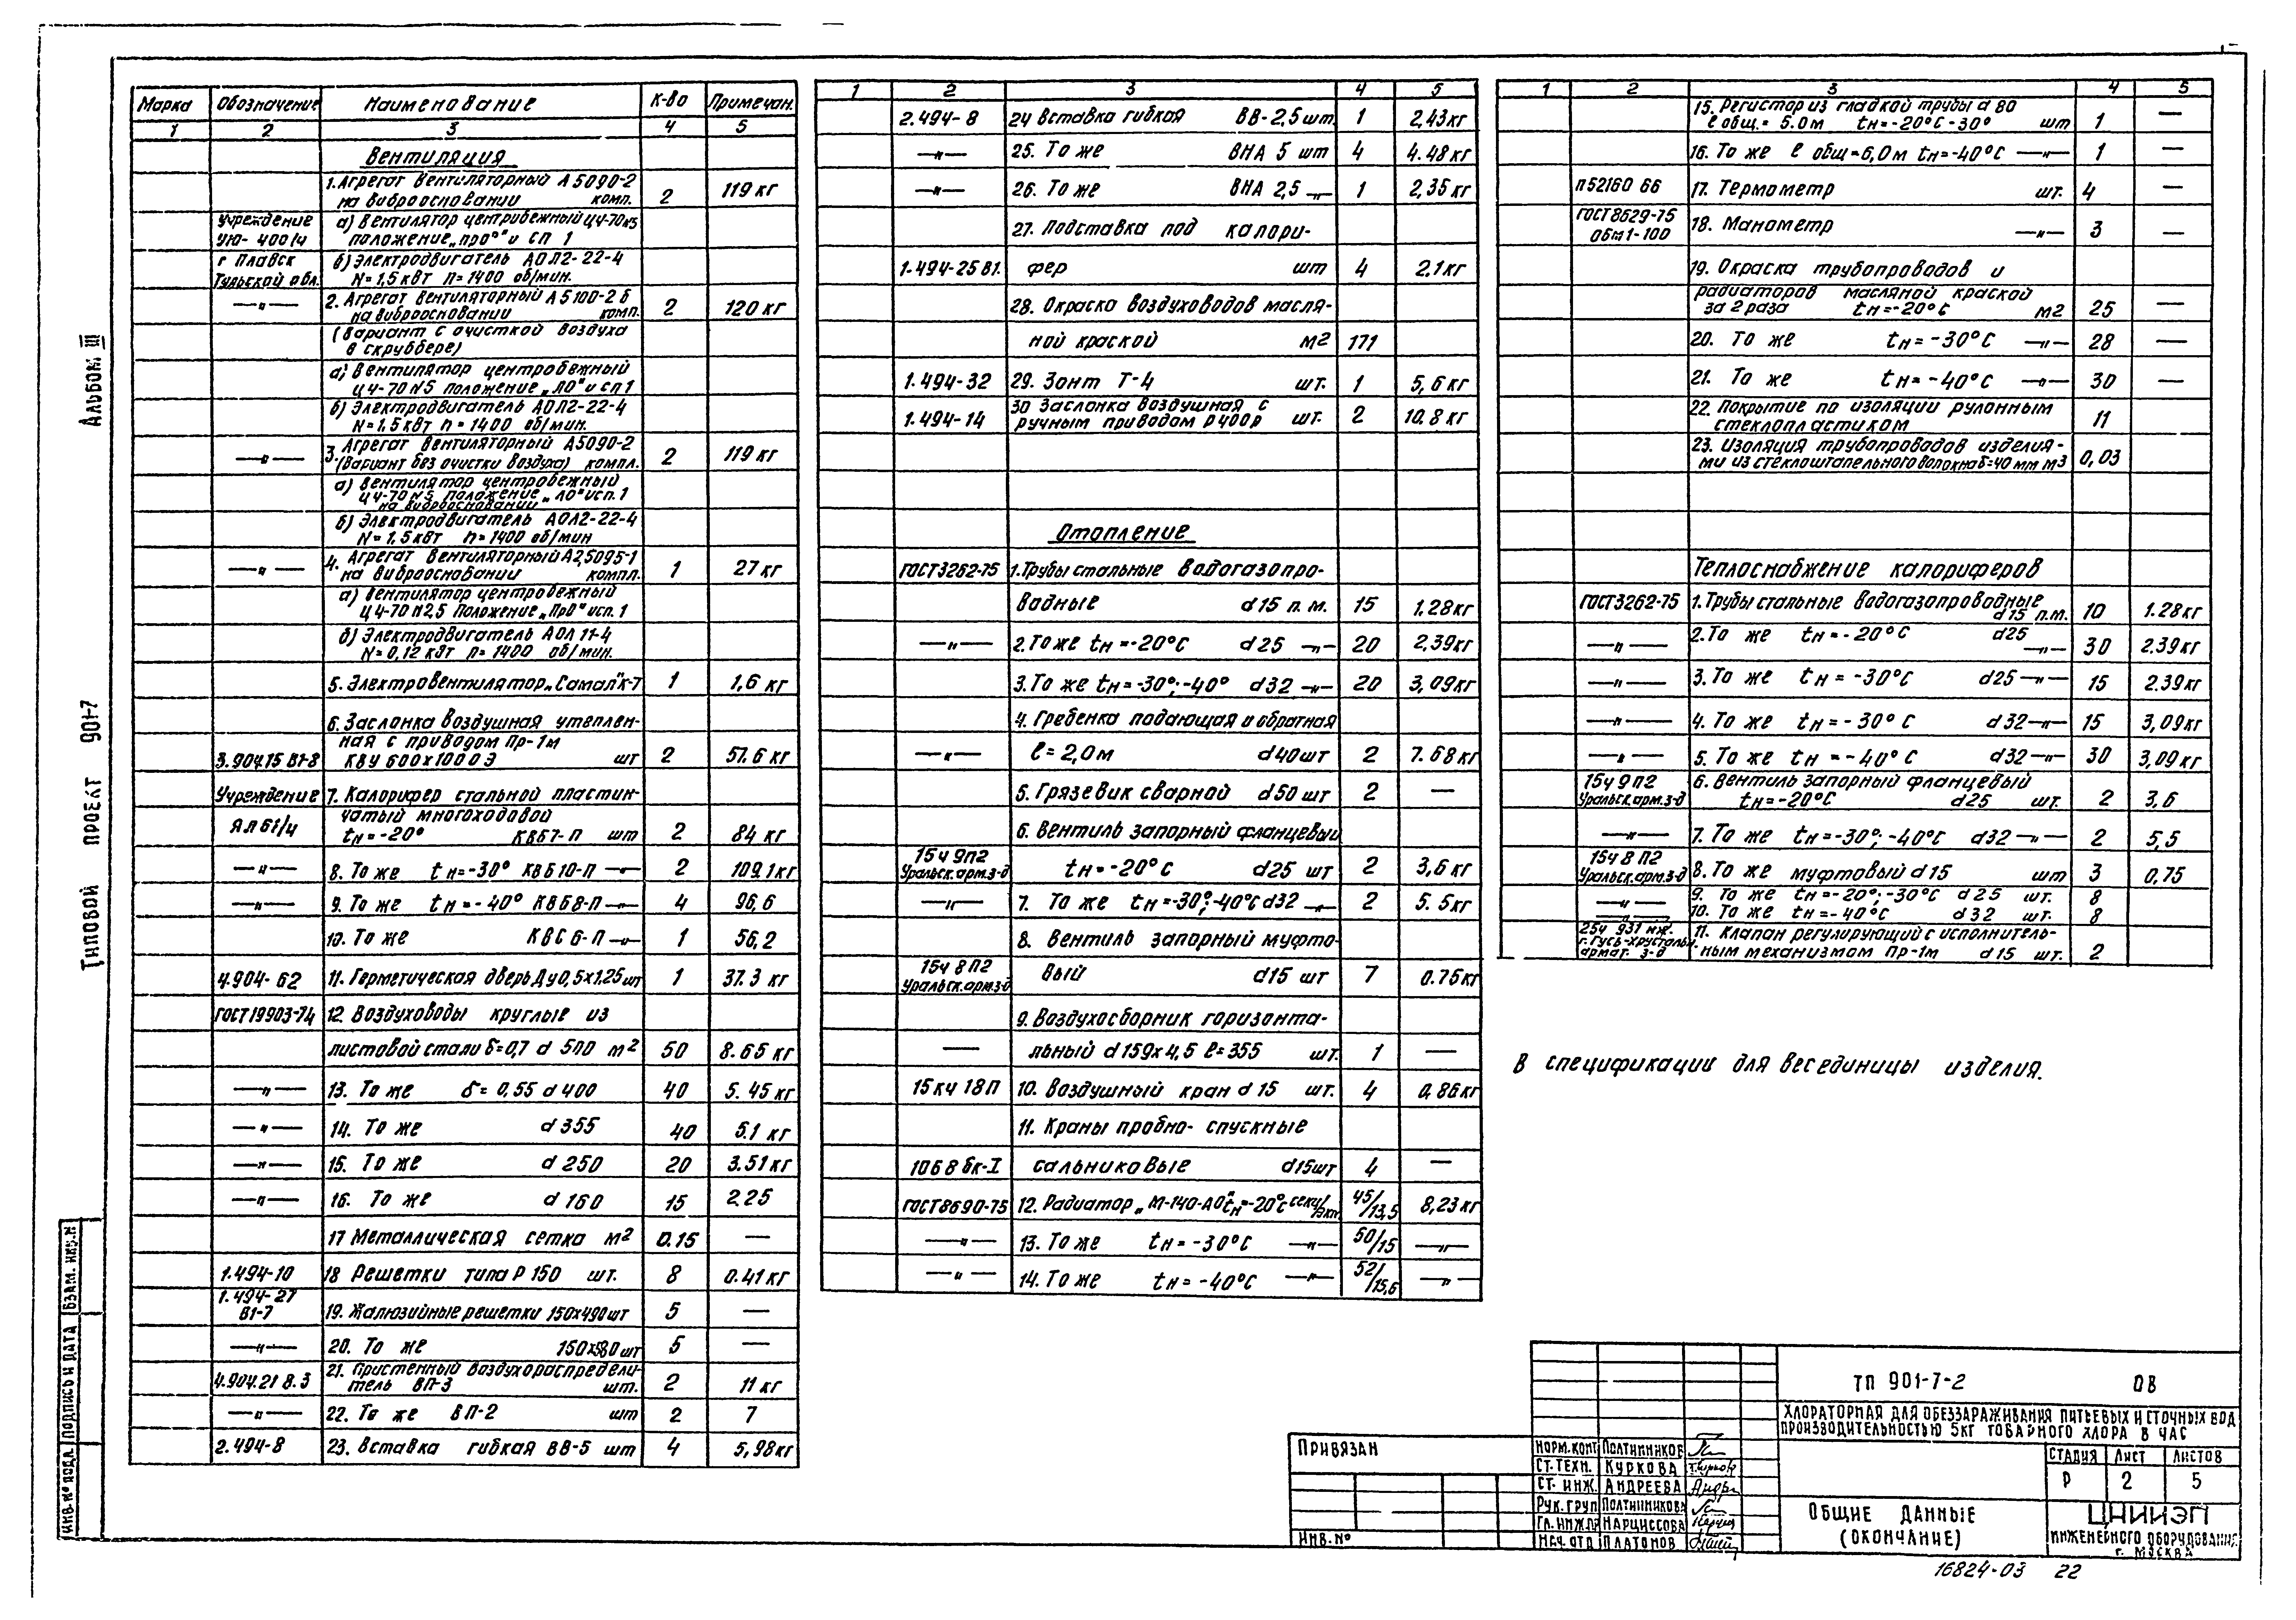 Альбом III
Типовой проект 901-7
Марка Обозначение Наименование К-во Примечан.
1 2 3 4 5
Вентиляция
1. Агрегат вентиляторный А5090-2
на виброосновании комп. 2 119 кг
Учреждение а) Вентилятор центрибежный Ц4-70 N5
УЮ-400/4 положение „про°" исп 1
г Плавск б) Электродвигатель АОЛ2-22-4
Тульской обл. N=1,5 кВт n=1400 об/мин.
—"— 2. Агрегат вентиляторный А5100-2б
на виброосновании комп. 2 120 кг
(Вариант с очисткой воздуха
в скруббере)
а) Вентилятор центробежный
Ц4-70 N5 положение „Л0" исп 1
б) Электродвигатель АОЛ2-22-4
N=1,5 кВт n=1400 об/мин.
—"— 3. Агрегат вентиляторный А5090-2
(Вариант без очистки воздуха) компл. 2 119 кг
а) Вентилятор центробежный
Ц4-70 N5 положение „Л0" исп.1
на виброосновании
б) Электродвигатель АОЛ2-22-4
N=1,5 кВт n=1400 об/мин
—"— 4. Агрегат вентиляторный А2,5095-1
на виброосновании компл. 1 27 кг
а) Вентилятор центробежный
Ц4-70 N2,5 Положение „Пр0" исп. 1
б) Электродвигатель АОЛ 11-4
N=0,12 кВт n=1400 об/мин.
5. Электровентилятор „Самал" К-7 1 1,6 кг
6. Заслонка воздушная утеплен-
ная с приводом Пр-1м
3.904.15 В1-8 КВУ 600х1000 Э шт 2 57.6 кг
Учреждение 7. Калорифер стальной пластин-
ЯЛ 61/4 чатый многоходовой
tн=-20° КВБ7-П шт 2 84 кг
—"— 8. То же tн=-30° КВБ10-П —"— 2 109.1 кг
—"— 9. То же tн=-40° КВБ8-П —"— 4 96,6
10. То же КВС6-П —"— 1 56,2
4.904-62 11. Герметическая дверь Ду 0,5х1.25 шт 1 37.3 кг
ГОСТ 19903-74 12. Воздуховоды круглые из
листовой стали δ=0,7 d 500 м² 50 8.65 кг
—"— 13. То же δ=0,55 d 400 40 5.45 кг
—"— 14. То же d 355 40 5.1 кг
—"— 15. То же d 250 20 3.51 кг
—"— 16. То же d 160 15 2.25
17 Металлическая сетка м² 0.15 —
1.494-10 18 Решетки типа Р 150 шт. 8 0.41 кг
1.494-27
В1-7 19. Жалюзийные решетки 150х490 шт 5 —
—"— 20. То же 150х580 шт 5 —
4.904.21 В.3 21. Пристенный воздухораспредели-
тель ВП-3 шт. 2 11 кг
—"— 22. То же ВП-2 шт 2 7
2.494-8 23. Вставка гибкая ВВ-5 шт 4 5,98 кг
1 2 3 4 5
2.494-8 24 Вставка гибкая ВВ-2,5 шт. 1 2,43 кг
—"— 25. То же ВНА 5 шт 4 4.48 кг
—"— 26. То же ВНА 2,5 —"— 1 2,35 кг
27. Подставка под калори-
1.494-25 В1. фер шт 4 2.1 кг
28. Окраска воздуховодов масля-
ной краской м2 171
1.494-32 29. Зонт Т-4 шт. 1 5,6 кг
1.494-14 30 Заслонка воздушная с
ручным приводом Р400р шт. 2 10.8 кг
Отопление
ГОСТ3262-75 1. Трубы стальные водогазопро-
водные d15 п.м. 15 1.28 кг
—"— 2. То же tн=-20°С d25 —"— 20 2,39 кг
3. То же tн=-30°; -40° d32 —"— 20 3,09 кг
4. Гребенка подающая и обратная
—"— ℓ=2,0м d40 шт 2 7.68 кг
5. Грязевик сварной d50 шт 2 —
6. Вентиль запорный фланцевый
15ч 9п2
Уральск.арм.з-д tн=-20°С d25 шт 2 3,6 кг
—"— 7. То же tн=-30°; -40°С d32 —"— 2 5.5 кг
8. Вентиль запорный муфто-
15ч 8П2
Уральск.арм.з-д вый d15 шт 7 0.75 кг
9. Воздухосборник горизонта-
— льный d159х4,5 ℓ=355 шт. 1 —
15кч 18П 10. Воздушный кран d 15 шт. 4 0.86 кг
11. Краны пробно-спускные
1068 бк-I сальниковые d15 шт 4 —
ГОСТ8690-75 12. Радиатор „М-140-А0" tн=-20°С секц/экм 45/13,5 8,23 кг
—"— 13. То же tн=-30°С —"— 50/15 —"—
—"— 14. То же tн=-40°С —"— 52/15,6 —"—
1 2 3 4 5
15. Регистор из гладкой трубы d 80
ℓ общ.=5.0м tн=-20°С-30° шт 1 —
16. То же ℓ общ=6,0м tн=-40°С —"— 1 —
П52160 66 17. Термометр шт. 4 —
ГОСТ 8629-75
ОБМ1-100 18. Манометр —"— 3 —
19. Окраска трубопроводов и
радиаторов масляной краской
за 2 раза tн=-20°С м2 25 —
20. То же tн=-30°С —"— 28 —
21. То же tн=-40°С —"— 30 —
22. Покрытие по изоляции рулонным
стеклопластиком 11
23. Изоляция трубопроводов изделия-
ми из стеклоштапельного волокна δ=40 мм м3 0,03
Теплоснабжение калориферов
ГОСТ3262-75 1. Трубы стальные водогазопроводные
d15 п.м. 10 1.28 кг
—"— 2. То же tн=-20°С d25 —"— 30 2.39 кг
—"— 3. То же tн=-30°С d25 —"— 15 2.39 кг
—"— 4. То же tн=-30°С d32 —"— 15 3,09 кг
—"— 5. То же tн=-40°С d32 —"— 30 3,09 кг
15ч 9П2 6. Вентиль запорный фланцевый
Уральск.арм.з-д tн=-20°С d25 шт. 2 3,6
—"— 7. То же tн=-30°; -40°С d32 —"— 2 5,5
15ч 8 П2
Уральск.арм.з-д 8. То же муфтовый d15 шт 3 0,75
—"— 9. То же tн=-20°; -30°С d25 шт. 8
—"— 10. То же tн=-40°С d32 шт. 8
25ч 931 нж. 11. Клапан регулирующий с исполнитель-
г. Гусь-Хрустальн.
армат. з-д ным механизмом Пр-1м d15 шт. 2
В спецификации дан вес единицы изделия.
ТП 901-7-2 ОВ
Хлораторная для обеззараживания питьевых и сточных вод
производительностью 5кг товарного хлора в час
Стадия Лист Листов
Р 2 5
Общие данные
(окончание)
ЦНИИЭП
инженерного оборудования
г. Москва
Норм.конт
Ст.техн. Куркова
Ст. инж. Андреева
Рук.груп Полтинникова
Гл.инж.пр Нарциссова
Нач.отд Платонов
Привязан
Инв.№
Взам. инв.№
Подпись и дата
Инв.№ подл.
16824-03 22